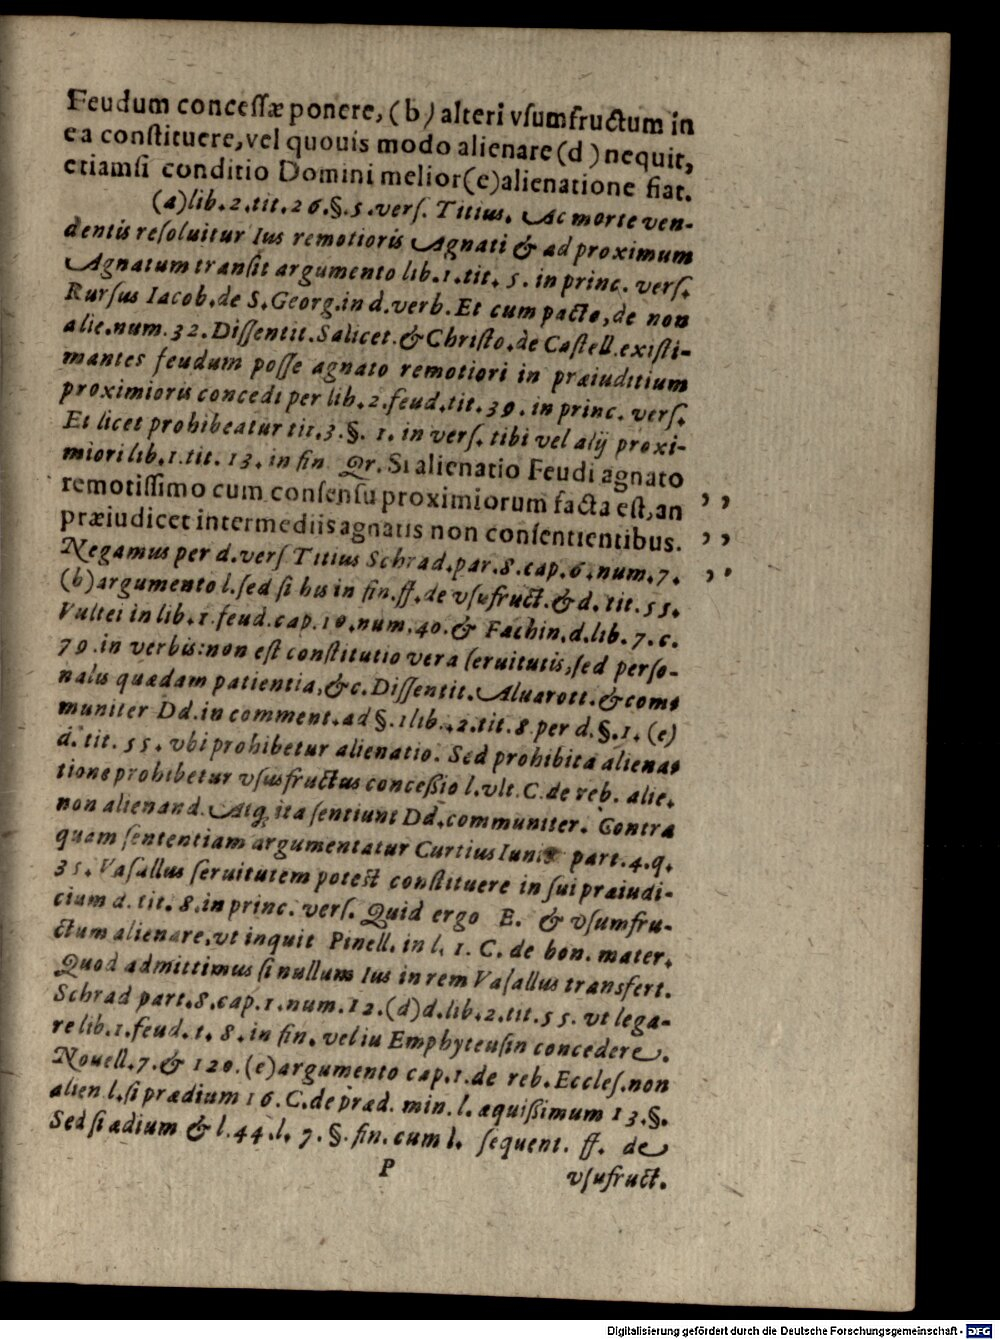 Feudum conceſſæ ponere, (b) alteri vſumfructum in
ea conſtituere, vel quouis modo alienare (d) nequit,
etiamſi conditio Domini melior (e) alienatione fiat.
(a) lib. 2. tit. 26. §. 5. verſ. Titius. Ac morte ven-
dentis reſoluitur Ius remotioris Agnati & ad proximum
Agnatum tranſit argumento lib. 1. tit. 5. in princ. verſ.
Rurſus Iacob. de S. Georg. in d. verb. Et cum pacto, de non
alie. num. 32. Diſſentit. Salicet. & Chriſto. de Caſtell. exiſti-
mantes feudum poſſe agnato remotiori in præiuditium
proximioris concedi per lib. 2. feud. tit. 39. in princ. verſ.
Et licet prohibeatur tit. 3. §. 1. in verſ. tibi vel alij proxi-
miori lib. 1. tit. 13. in fin Qr. Si alienatio Feudi agnato
remotiſſimo cum conſenſu proximiorum facta eſt, an ,,
præiudicet intermediis agnatis non conſentientibus. ,,
Negamus per d. verſ Titius Schrad. par. 8. cap. 6. num. 7. ,,
(b) argumento l. ſed ſi his in fin. ff. de vſufruct. & d. tit. 55.
Vultei in lib. 1. feud. cap. 10. num. 40. & Fachin. d. lib. 7. c.
70. in verbis: non eſt conſtitutio vera ſeruitutis, ſed perſo-
nalis quædam patientia, &c. Diſſentit. Aluarott. & com-
muniter Dd. in comment. ad §. 1 lib. 2. tit. 8 per d. §. 1. (e)
d. tit. 55. vbi prohibetur alienatio. Sed prohibita aliena-
tione prohibetur vſusfructus conceßio l. vlt. C. de reb. alie.
non alienand. Atq; ita ſentiunt Dd. communiter. Contra
quam ſententiam argumentatur Curtius Iun. part. 4. q.
35. Vaſallus ſeruitutem poteſt conſtituere in ſui præiudi-
cium d. tit. 8. in princ. verſ. Quid ergo E. & vſumfru-
ctum alienare, vt inquit Pinell. in l. 1. C. de bon. mater.
Quod admittimus ſi nullum Ius in rem Vaſallus transfert.
Schrad part. 8. cap. 1. num. 12. (d) d. lib. 2. tit. 55. vt lega-
re lib. 1. feud. t. 8. in fin. vel iu Emphyteuſin concedere.
Nouell. 7. & 120. (e) argumento cap. 1. de reb. Eccleſ. non
alien l. ſi prædium 16. C. de præd. min. l. æquißimum 13. §.
Sed ſi ædium & l. 44. l. 7. §. fin. cum l. ſequent. ff. de
P vſufruct.
Digitalisierung gefördert durch die Deutsche Forschungsgemeinschaft - DFG